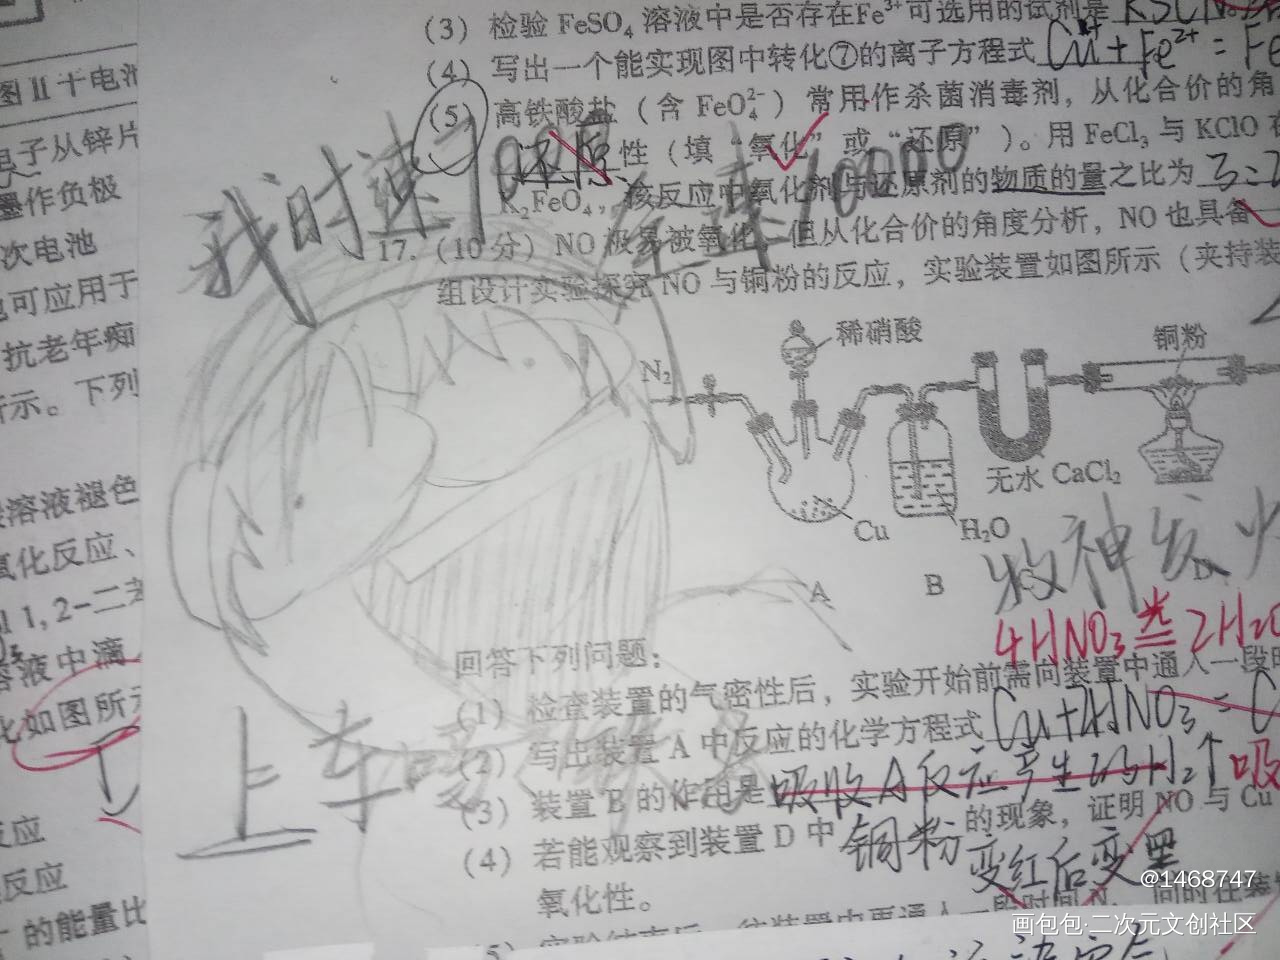 (3) 检验 FeSO₄ 溶液中是否存在Fe³⁺可选用的试剂是 KSCN
(4) 写出一个能实现图中转化⑦的离子方程式 Cu + Fe²⁺ = Fe
(5) 高铁酸盐（含 FeO₄²⁻）常用作杀菌消毒剂，从化合价的角
性（填“氧化”或“还原”）。用 FeCl₃ 与 KClO
K₂FeO₄，该反应中氧化剂与还原剂的物质的量之比为 3:2
我时速
17. (10 分) NO 极易被氧化，但从化合价的角度分析，NO 也具备一
组设计实验探究 NO 与铜粉的反应，实验装置如图所示（夹持装
图 II 十电池
电子从锌片
墨作负极
次电池
也可应用于
抗老年痴
所示。下列
溶液褪色
氧化反应、
1,2-二
溶液中滴
化如图所示
反应
反应
的能量比
N₂
稀硝酸
铜粉
无水 CaCl₂
Cu
H₂O
A
B
牧神发
4HNO₃ 光 2H₂O
回答下列问题：
(1) 检查装置的气密性后，实验开始前需向装置中通入一段时
(2) 写出装置 A 中反应的化学方程式 Cu+2HNO₃ = C
(3) 装置 B 的作用是 吸收A反应产生的H₂↑ 吸
(4) 若能观察到装置 D 中 铜粉变红后变黑 的现象，证明 NO 与 Cu
氧化性。
上车
@1468747
画包包·二次元文创社区